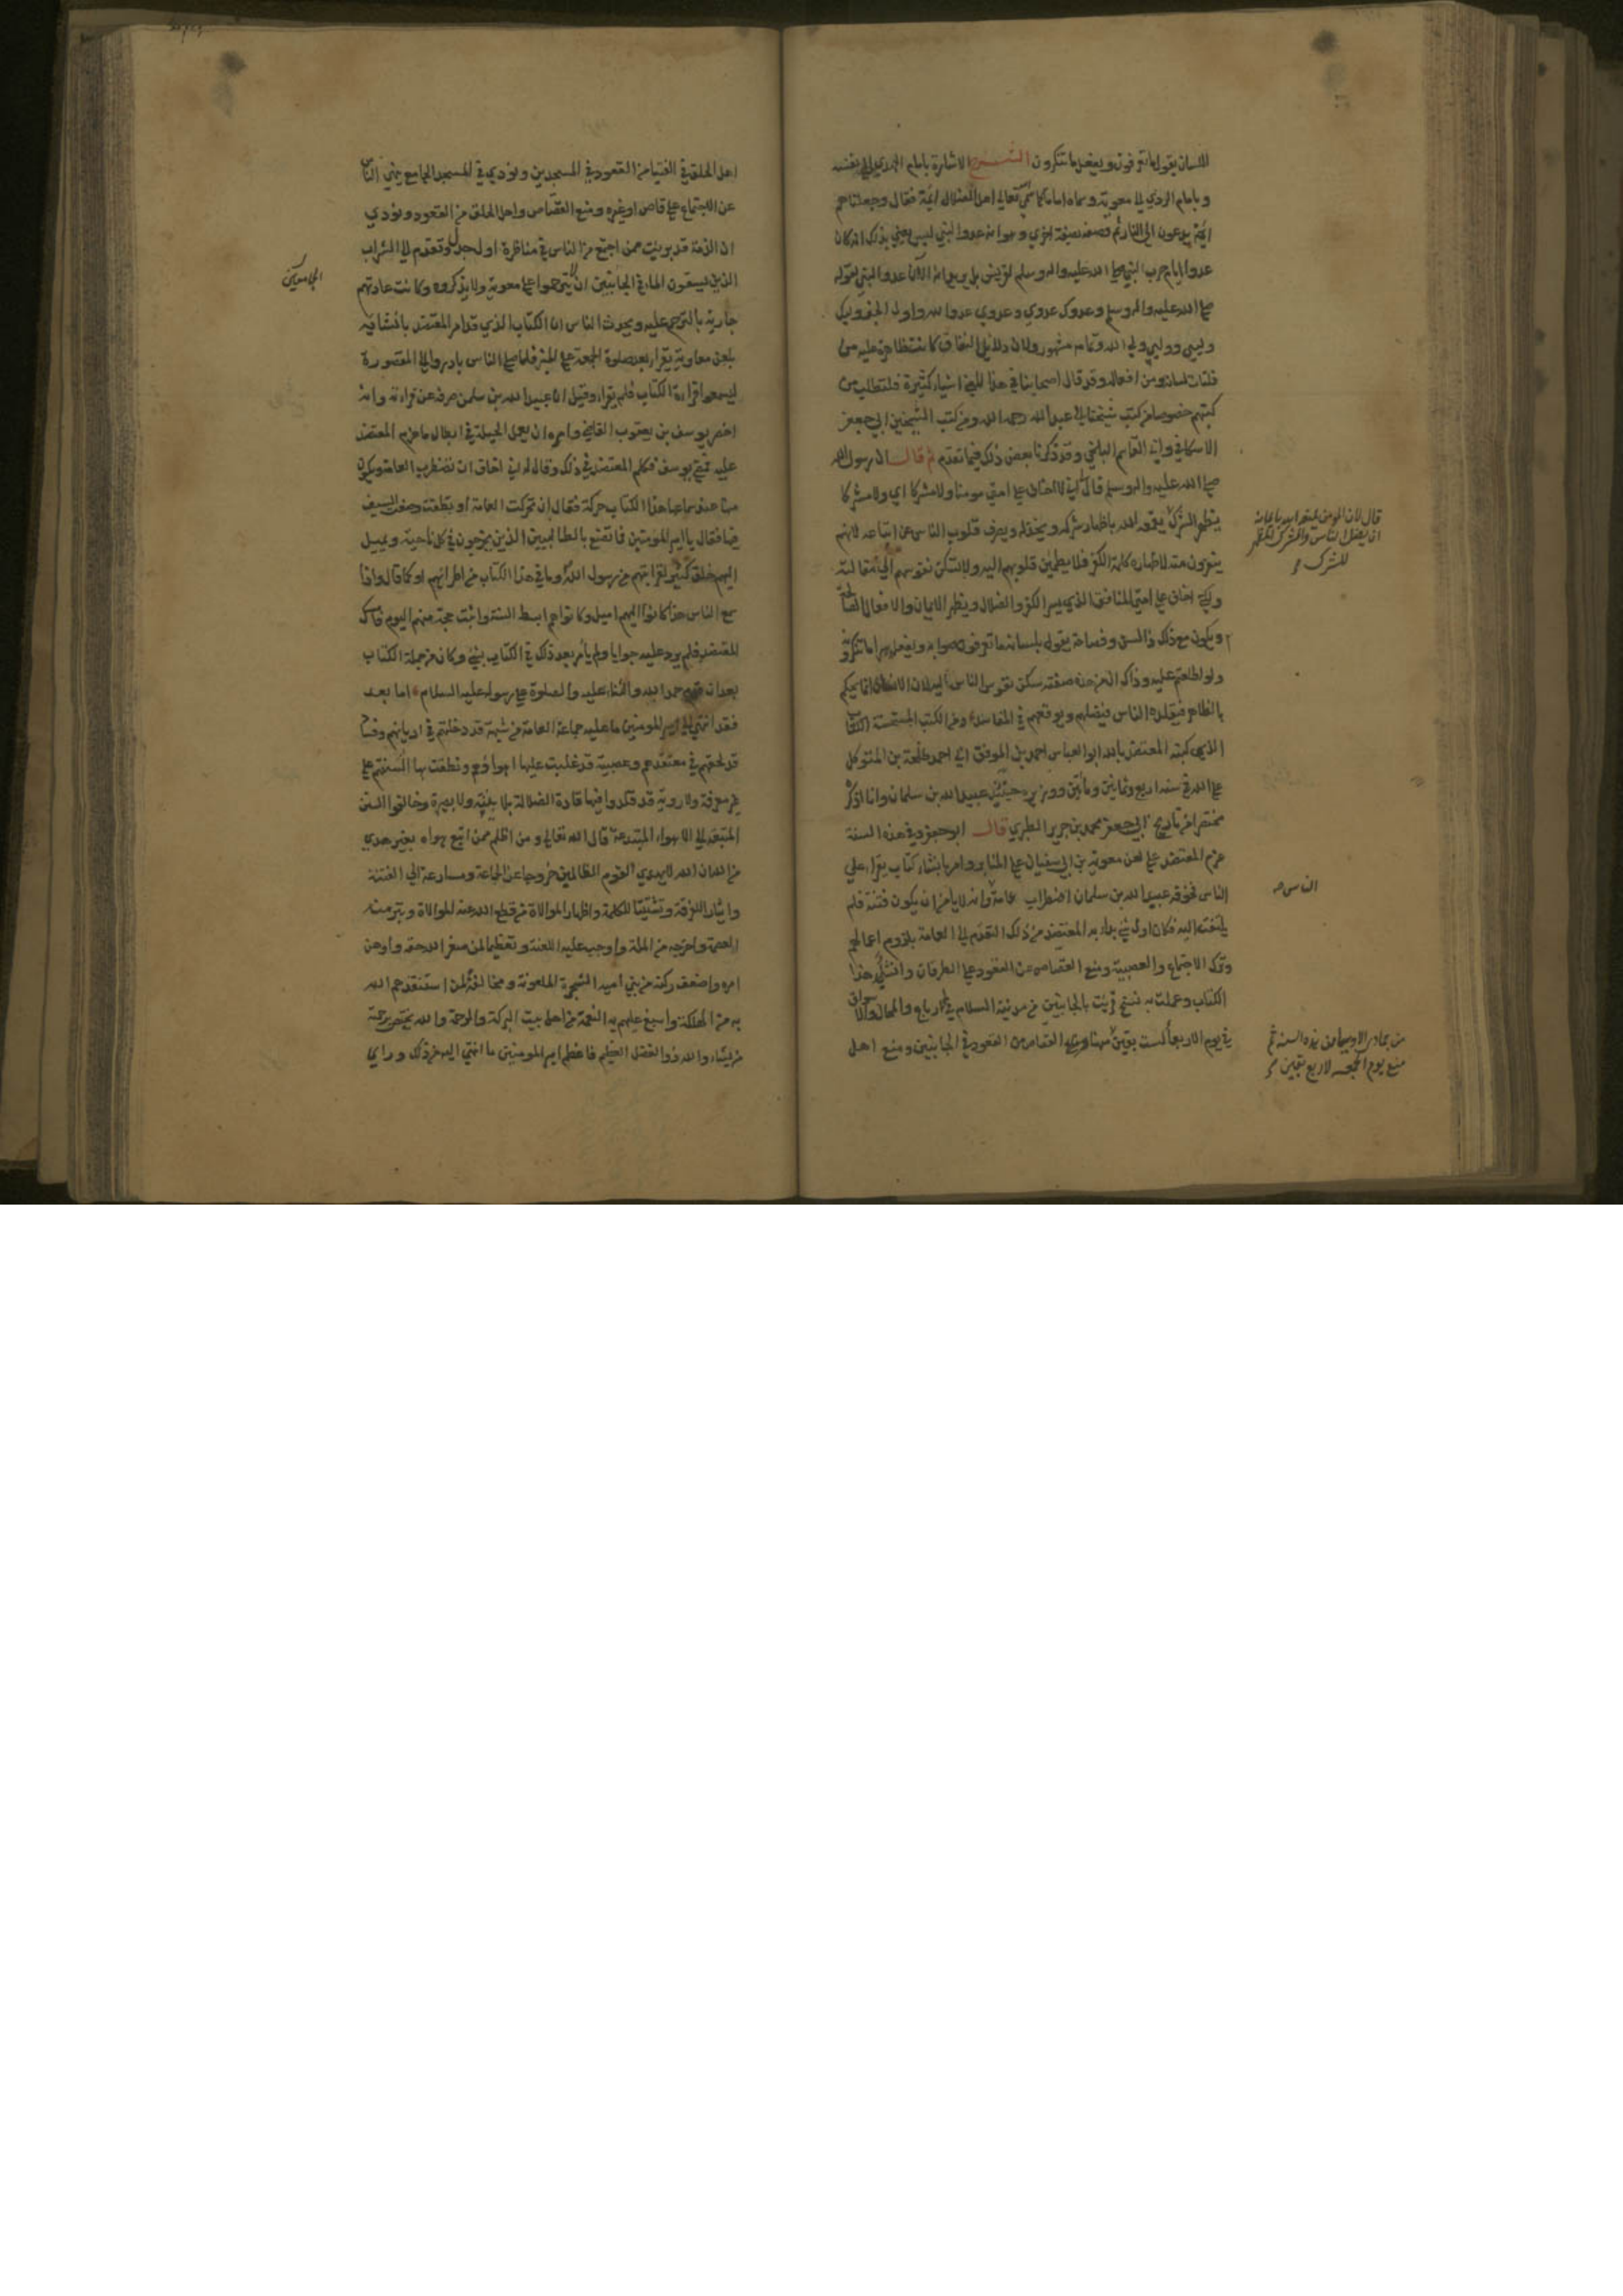 اللسان يقول ما تعرفون ويفعل ما تنكرون الشرح الاشارة بامام الهدي الي نفسه
وبامام الردي الي معوية وسماه اماما كما سمي تعالي اهل الضلال ائمة فقال وجعلناهم
ائمة يدعون الي النار ثم وصفه بصفة اخري وهو انه عدو النبي ليس يعني بذلك انه كان
عدوا ايام حرب النبي صلي الله عليه واله وسلم لقريش بل يريد انه الآن عدو النبي لقوله
صلي الله عليه واله وسلم وعدوك عدوي وعدوي عدو الله واول الخبر وليك
وليي ووليي ولي الله وتمامه مشهور ولان دلايل النفاق كانت ظاهرة عليه من
فلتات لسانه ومن افعاله وقد قال اصحابنا في هذا المعني اشياء كثيرة فلتطلب من
كتبهم خصوصا من كتب شيخنا ابي عبد الله رحمه الله ومن كتب الشيخين ابي جعفر
الاسكافي وابي القاسم البلخي وقد ذكرنا بعض ذلك فيما تقدم ثم قال ان رسول الله
صلي الله عليه واله وسلم قال اني لا اخاف علي امتي مومنا ولا مشركا اي ولا مشركا
يظهر الشرك
قال لان المومن يمنعه الله بايمانه
ان يضل الناس والمشرك المظهر
للشرك
يقمعه الله باظهار شركه ويخذله ويصرف قلوب الناس عن اتباعه لانهم
ينفرون منه لاظهاره كلمة الكفر فلا يطمئن قلوبهم اليه ولا تسكن نفوسهم الي مقالته
ولكني اخاف علي امتي المنافق الذي يسر الكفر والضلال ويظهر الايمان والافعال الصالحة
ويكون مع ذلك ذا لسن وفصاحة يقول بلسانه ما تعرفون صوابه ويفعل سرا ما تنكرونه
ولو اطلعتم عليه وذاك ان من هذه صفته تسكن نفوس الناس اليه لان الانسان انما يحكم
بالظاهر فيقلده الناس فيضلهم ويوقعهم في المفاسد ومن الكتب المستحسنة الكتاب
الذي كتبه المعتضد بالله ابو العباس احمد بن الموفق ابي احمد طلحة بن المتوكل
علي الله في سنة اربع وثمانين ومأتين ووزيره حينئذ عبيد الله بن سلمان وانا اذكره
مختصرا من تاريخ ابي جعفر محمد بن جرير الطبري قال ابو جعفر وفي هذه السنة
عزم المعتضد علي لعن معوية بن ابي سفيان علي المنابر وامر بانشاء كتاب يقراء علي
الناس فخوفه عبيد الله بن سلمان اضطراب عامة وانه لا يأمن ان يكون فتنة فلم
الناس
يلتفت اليه فكان اول شيء بداء به المعتضد من ذلك التقدم الي العامة بلزوم اعمالهم
وترك الاجتماع والعصبية ومنع القصاص عن القعود علي الطرقات وانشئ هذا
الكتاب وعملت به نسخ قرئت بالجانبين من مدينة السلام في الارباع والمحال والاسواق
في يوم الاربعاء لست بقين
من جمادي الاولي من هذه السنة ثم
منع يوم الجمعه لاربع بقين
منها القصاص من القعود في الجانبين ومنع اهل
اهل الحلق في الفتيا من القعود في المسجدين ونودي في المسجد الجامع بنهي الناس
عن الاجتماع علي قاص او غيره ومنع القصاص واهل الحلق من القعود ونودي
ان الذمة قد بريت ممن اجتمع من الناس في مناظرة او جدل وتقدم الي الشراب
الذين يسقون الماء في الجانبين ان لا يترحموا علي معوية ولا يذكروه وكانت عادتهم
الجامعين
جارية بالترحم عليه ويحدث الناس ان الكتاب الذي قد امر المعتضد بانشائه
بلعن معاوية يقراء بعد صلوة الجمعة علي المنبر فلما صلي الناس بادروا الي المقصورة
ليسمعوا قراءة الكتاب فلم يقراء وقيل ان عبيد الله بن سلمان صرفه عن قراءته وانه
احضر يوسف بن يعقوب القاضي وامره ان يعمل الحيلة في ابطال ما عزم المعتضد
عليه فمضي يوسف فكلم المعتضد في ذلك وقال له اني اخاف ان تضطرب العامة ويكون
منها عند سماعها هذا الكتاب حركة فقال ان تحركت العامة او نطقت وضعت السيف
فيها فقال يا امير المومنين فما تصنع بالطالبيين الذين يخرجون في كل ناحية ويميل
اليهم خلق كثير لقرابتهم من رسول الله وما في هذا الكتاب من اطرائهم او كما قال واذا
سمع الناس هذا كانوا اليهم اميل وكانوا هم ابسط السنة واثبت حجة منهم اليوم فامسك
المعتضد فلم يرد عليه جوابا ولم يأمر بعد ذلك في الكتاب بشيء وكان من جملة الكتاب
بعد ان حمد الله والثناء عليه والصلوة علي رسوله عليه السلام اما بعد
فقد انتهي الي امير المومنين ما عليه جماعة العامة من شبهة قد دخلتهم في اديانهم وفساد
قد لحقهم في معتقدهم وعصبية قد غلبت عليها اهواؤهم ونطقت بها السنتهم علي
غير معرفة ولا روية قد قلدوا فيها قادة الضلالة بلا بينة ولا بصيرة وخالفوا السنن
المتبعة الي الاهواء المبتدعة قال الله تعالي ومن اظلم ممن اتبع هواه بغير هدي
من الله ان الله لا يهدي القوم الظالمين خروجا عن الجماعة ومسارعة الي الفتنة
وايثارا للفرقة وتشتيتا للكلمة واظهارا لموالاة من قطع الله عنه الموالاة وبتر منه
العصمة واخرجه من الملة واوجب عليه اللعنة وتعظيما لمن صغر الله حقه واوهن
امره واضعف ركنه من بني أمية الشجرة الملعونة ومخالفة لمن استنقذهم الله
به من الهلكة واسبغ عليهم به النعمة من اهل بيت البركة والرحمة والله يختص برحمته
من يشاء والله ذو الفضل العظيم فاعظم امير المومنين ما انتهي اليه من ذلك ورأي ما